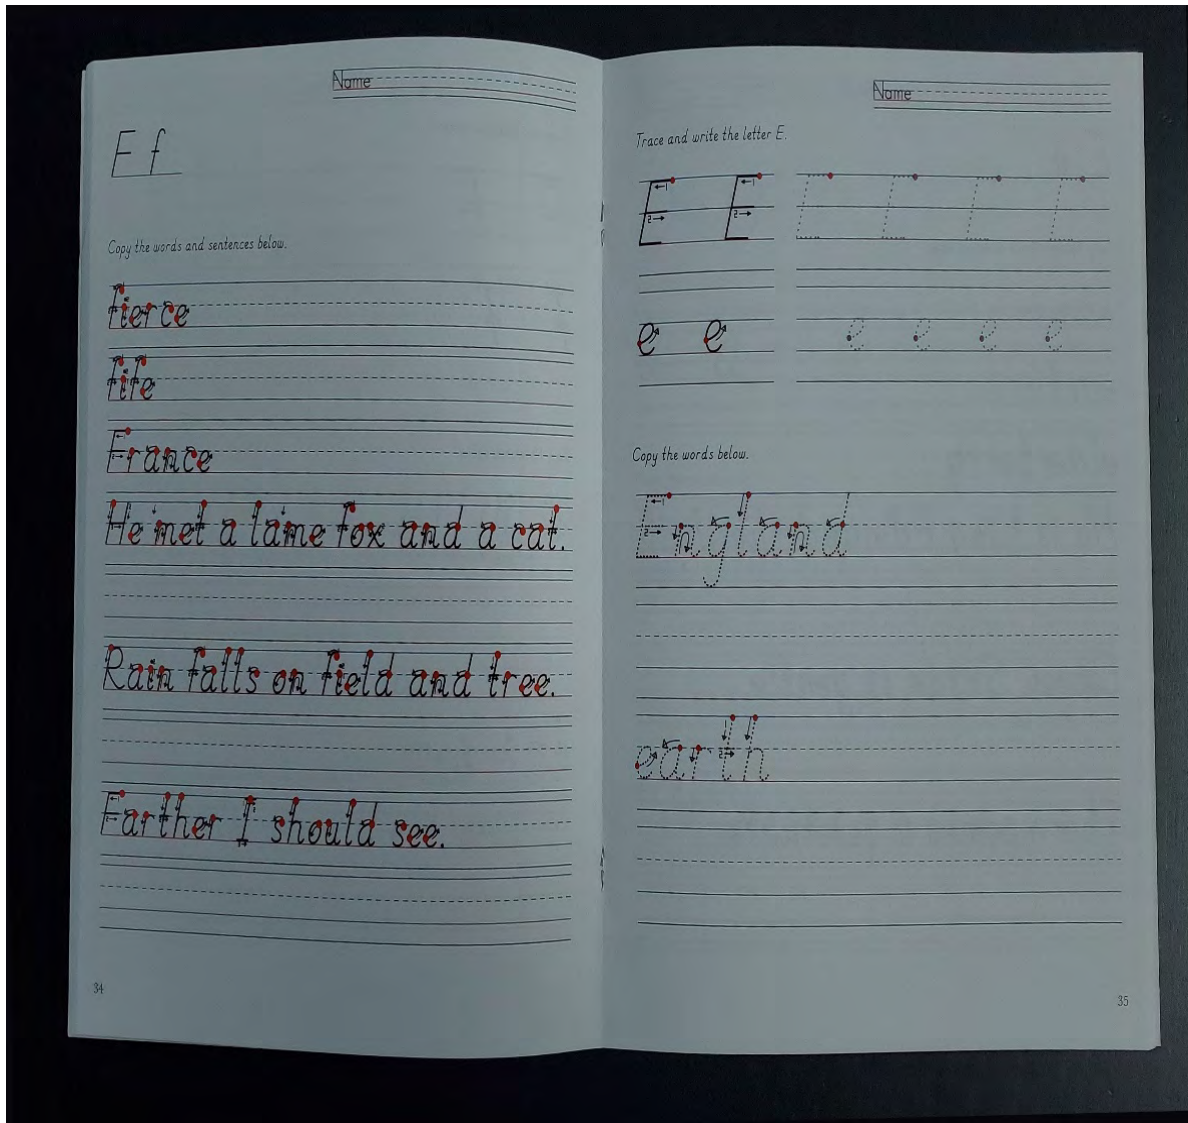 Name
F f
Copy the words and sentences below.
fierce
fife
France
He met a lame fox and a cat.
Rain falls on field and tree.
Farther I should see.
34
Name
Trace and write the letter E.
E E E E E E
e e e e e e
Copy the words below.
England
earth
35